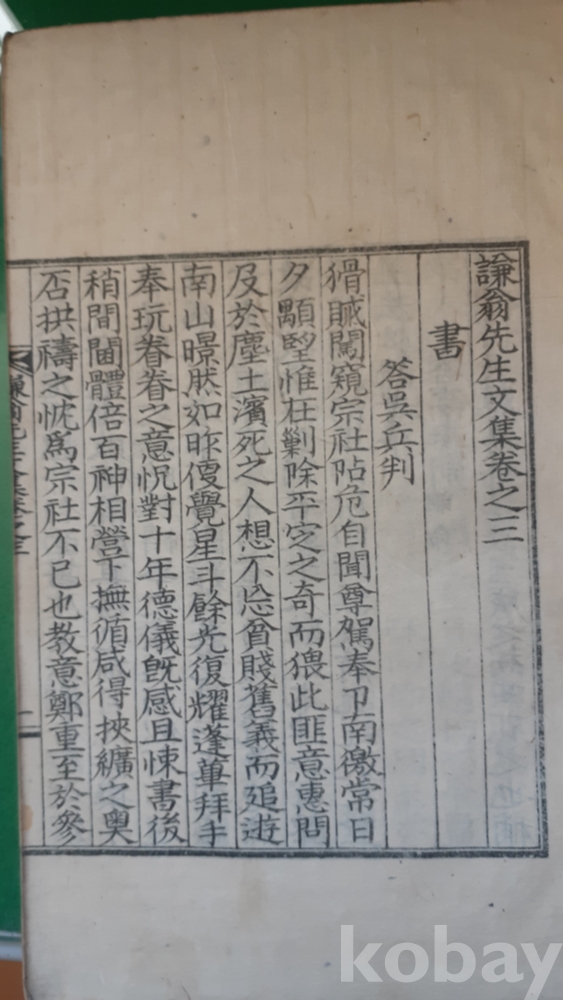 謙翁先生文集卷之三
書
答吳兵判
猾賊闖窺宗社阽危自聞尊駕奉卫南徼常日
夕顒望惟在剿除平定之奇而猥此匪意惠問
及於塵土濱死之人想不忘貧賤舊義而追遊
南山暻然如昨復覺星斗餘光復耀蓬蓽拜手
奉玩眷眷之意怳對十年德儀旣感且悚書後
稍間閫體倍百神相營下撫循咸得挾纊之奧
否拱禱之忱爲宗社不已也教意鄭重至於參
謙翁先生文集卷之三
一
kobay